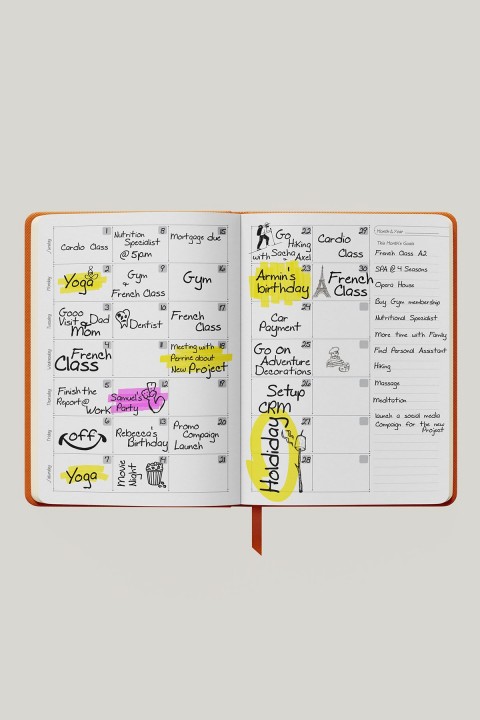 Sunday
Monday
Tuesday
Wednesday
Thursday
Friday
Saturday
1
Cardio Class
2
Yoga
3
Gooo
Visit Dad
Mom
4
French
Class
5
Finish the
Report @
Work
6
off
7
Yoga
8
Nutrition
Specialist
@ 5pm
9
Gym
+
French Class
10
Dentist
11
12
Samuel's
Party
13
Rebecca's
Birthday
14
Movie
Night
15
Mortgage due
16
Gym
17
French
Class
18
Meeting with
Perrine about
New Project
19
20
Promo
Campaign
Launch
21
22
Go
Hiking
with Sacha &
Axel
23
Armin's
birthday
24
Car
Payment
25
Go on
Adventure
Decorations
26
Setup
CRM
27
28
Holdiday
29
Cardio
Class
30
French
Class
Month & Year
This Month's Goals
French Class A2
SPA @ 4 Seasons
Opera House
Buy Gym membership
Nutritional Specialist
More time with Family
Find Personal Assistant
Hiking
Massage
Meditation
launch a social media
Campaign for the new
Project